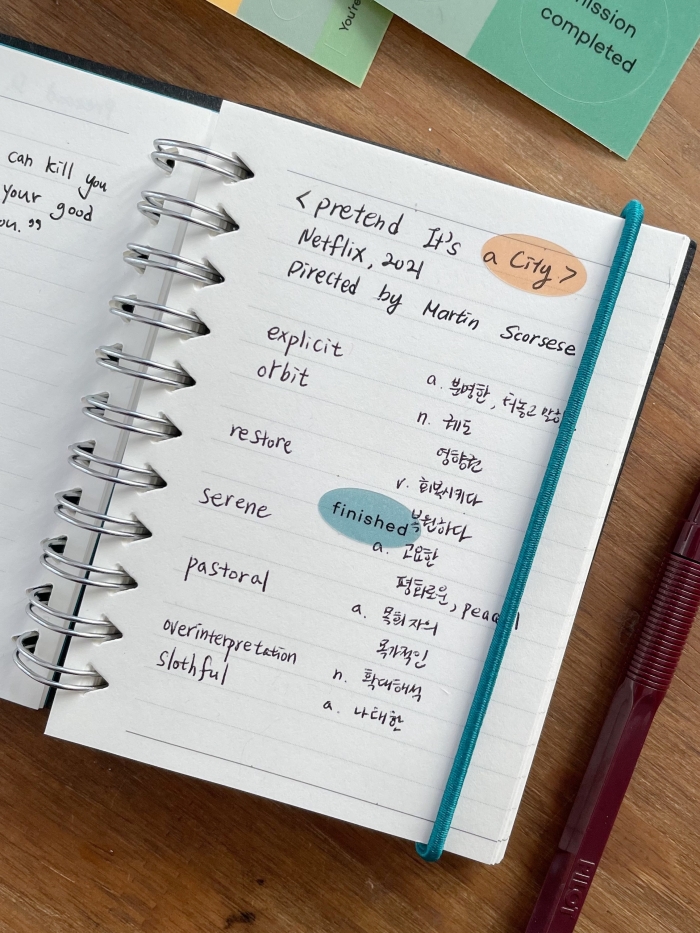 You're
mission
completed
can kill you
your good
you."
< pretend It's a City >
Netflix, 2021
Directed by Martin Scorsese
explicit a. 분명한, 터놓고
orbit n. 궤도
영향권
restore v. 회복시키다
복원하다
serene a. 고요한
finished
평화로운,
pastoral a. 목회자의
목가적인
overinterpretation n. 확대해석
slothful a. 나태한
PILOT